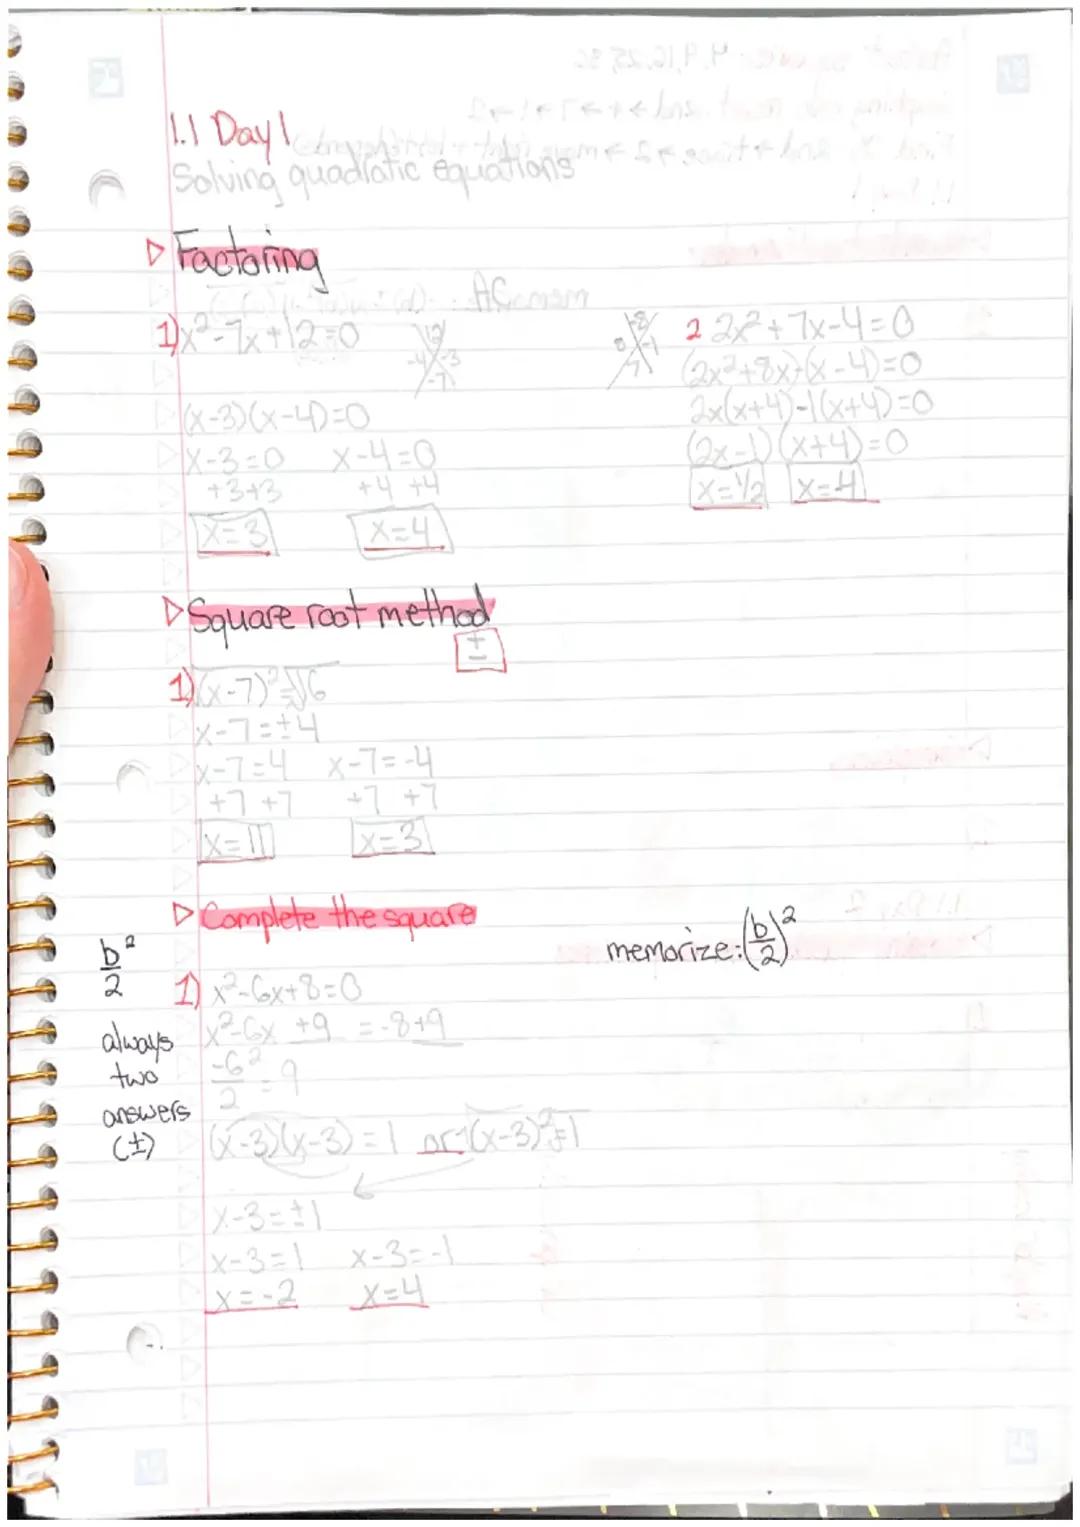 1.1 Day 1
Solving quadratic equations
▷ Factoring
1) x²-7x+12=0
12
-4 -3
-7
(x-3)(x-4)=0
x-3=0 x-4=0
+3+3 +4 +4
x=3 x=4
-8
8 -1
7
2 2x²+7x-4=0
(2x²+8x)(x-4)=0
2x(x+4)-1(x+4)=0
(2x-1)(x+4)=0
x=1/2 x=-4
▷ Square root method
±
1) √(x-7)²=√16
x-7=±4
x-7=4 x-7=-4
+7 +7 +7 +7
x=11 x=3
▷ Complete the square
memorize: (b/2)²
b²/2
always
two
answers
(±)
1) x²-6x+8=0
x²-6x +9 = -8+9
-6²/2 = 9
(x-3)(x-3)=1 or √(x-3)²=√1
x-3=±1
x-3=1 x-3=-1
x=-2 x=4